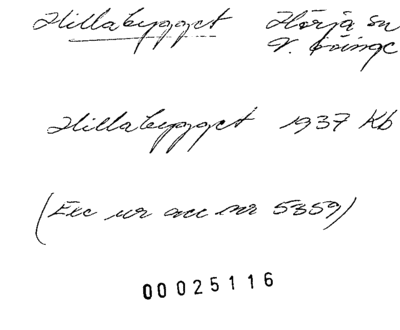 Hillabygget Hörja sn
V. Göinge
Hillabygget 1937 Kb
(Exc ur acc nr 5359)
00025116